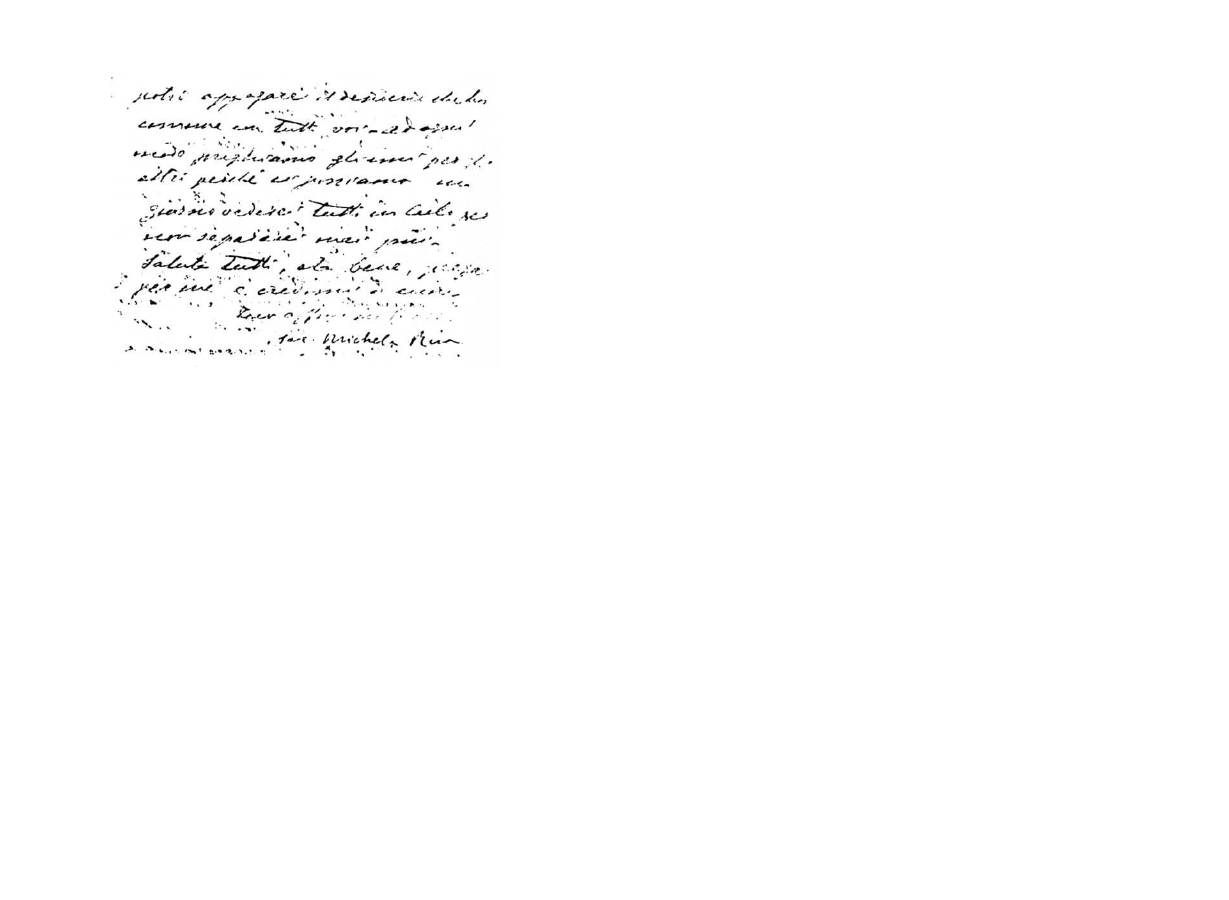 potrò appagare il desiderio che ho
comune con tutti voi - ad ogni
modo preghiamo gli uni per gli
altri perché ci possiamo un
giorno vederci tutti in Cielo per
non separarci mai più.
Saluta tutti, sta bene, prega
per me e credimi di cuore
Tuo aff.mo
Sac. Michele Rua